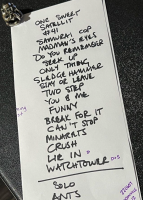 ONE SWEET
SATELLIT
#41
SAMURAI COP
MADMAN'S EYES
DO YOU REMEMBER
SEEK UP
ONLY THING
SLEDGEHAMMER
STAY OR LEAVE
TWO STEP
YOU & ME
FUNNY
BREAK FOR IT
CAN'T STOP
MINARETS
CRUSH
LIE IN
WATCHTOWER
SOLO
ANTS